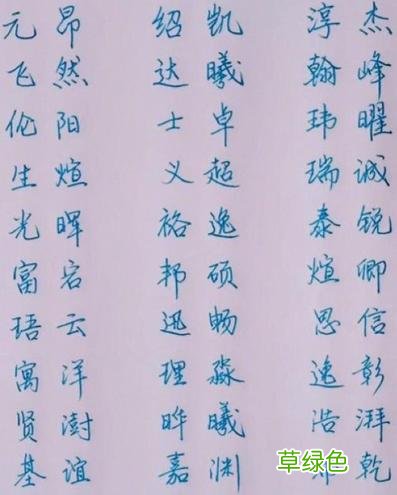 元昂 绍凯 淳杰
飞然 达曦 翰峰
伦阳 士卓 玮曜
生煊 义超 瑞诚
光晖 裕逸 泰锐
富宕 邦硕 煊卿
珸云 迅畅 思信
寓洋 理淼 逸彰
贤澍 晖曦 浩湃
基谊 嘉渊 乾
草绿色